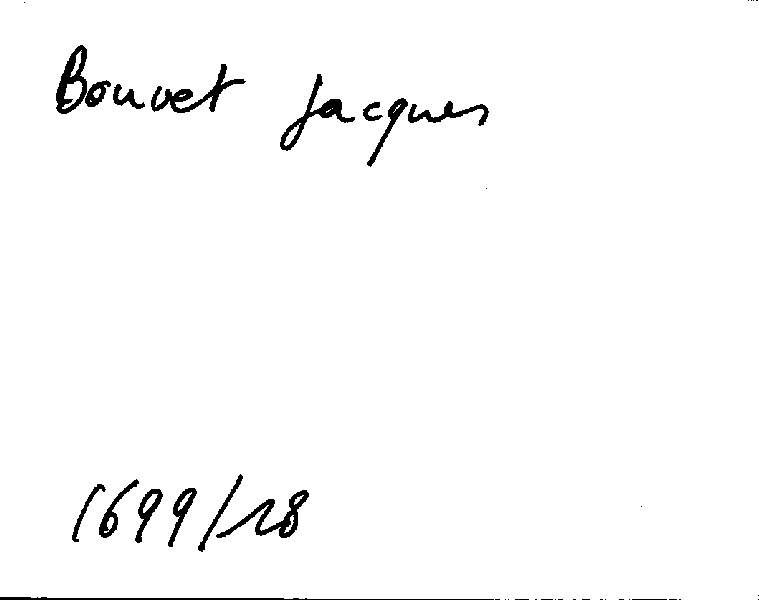 Bouvet Jacques
1699/28